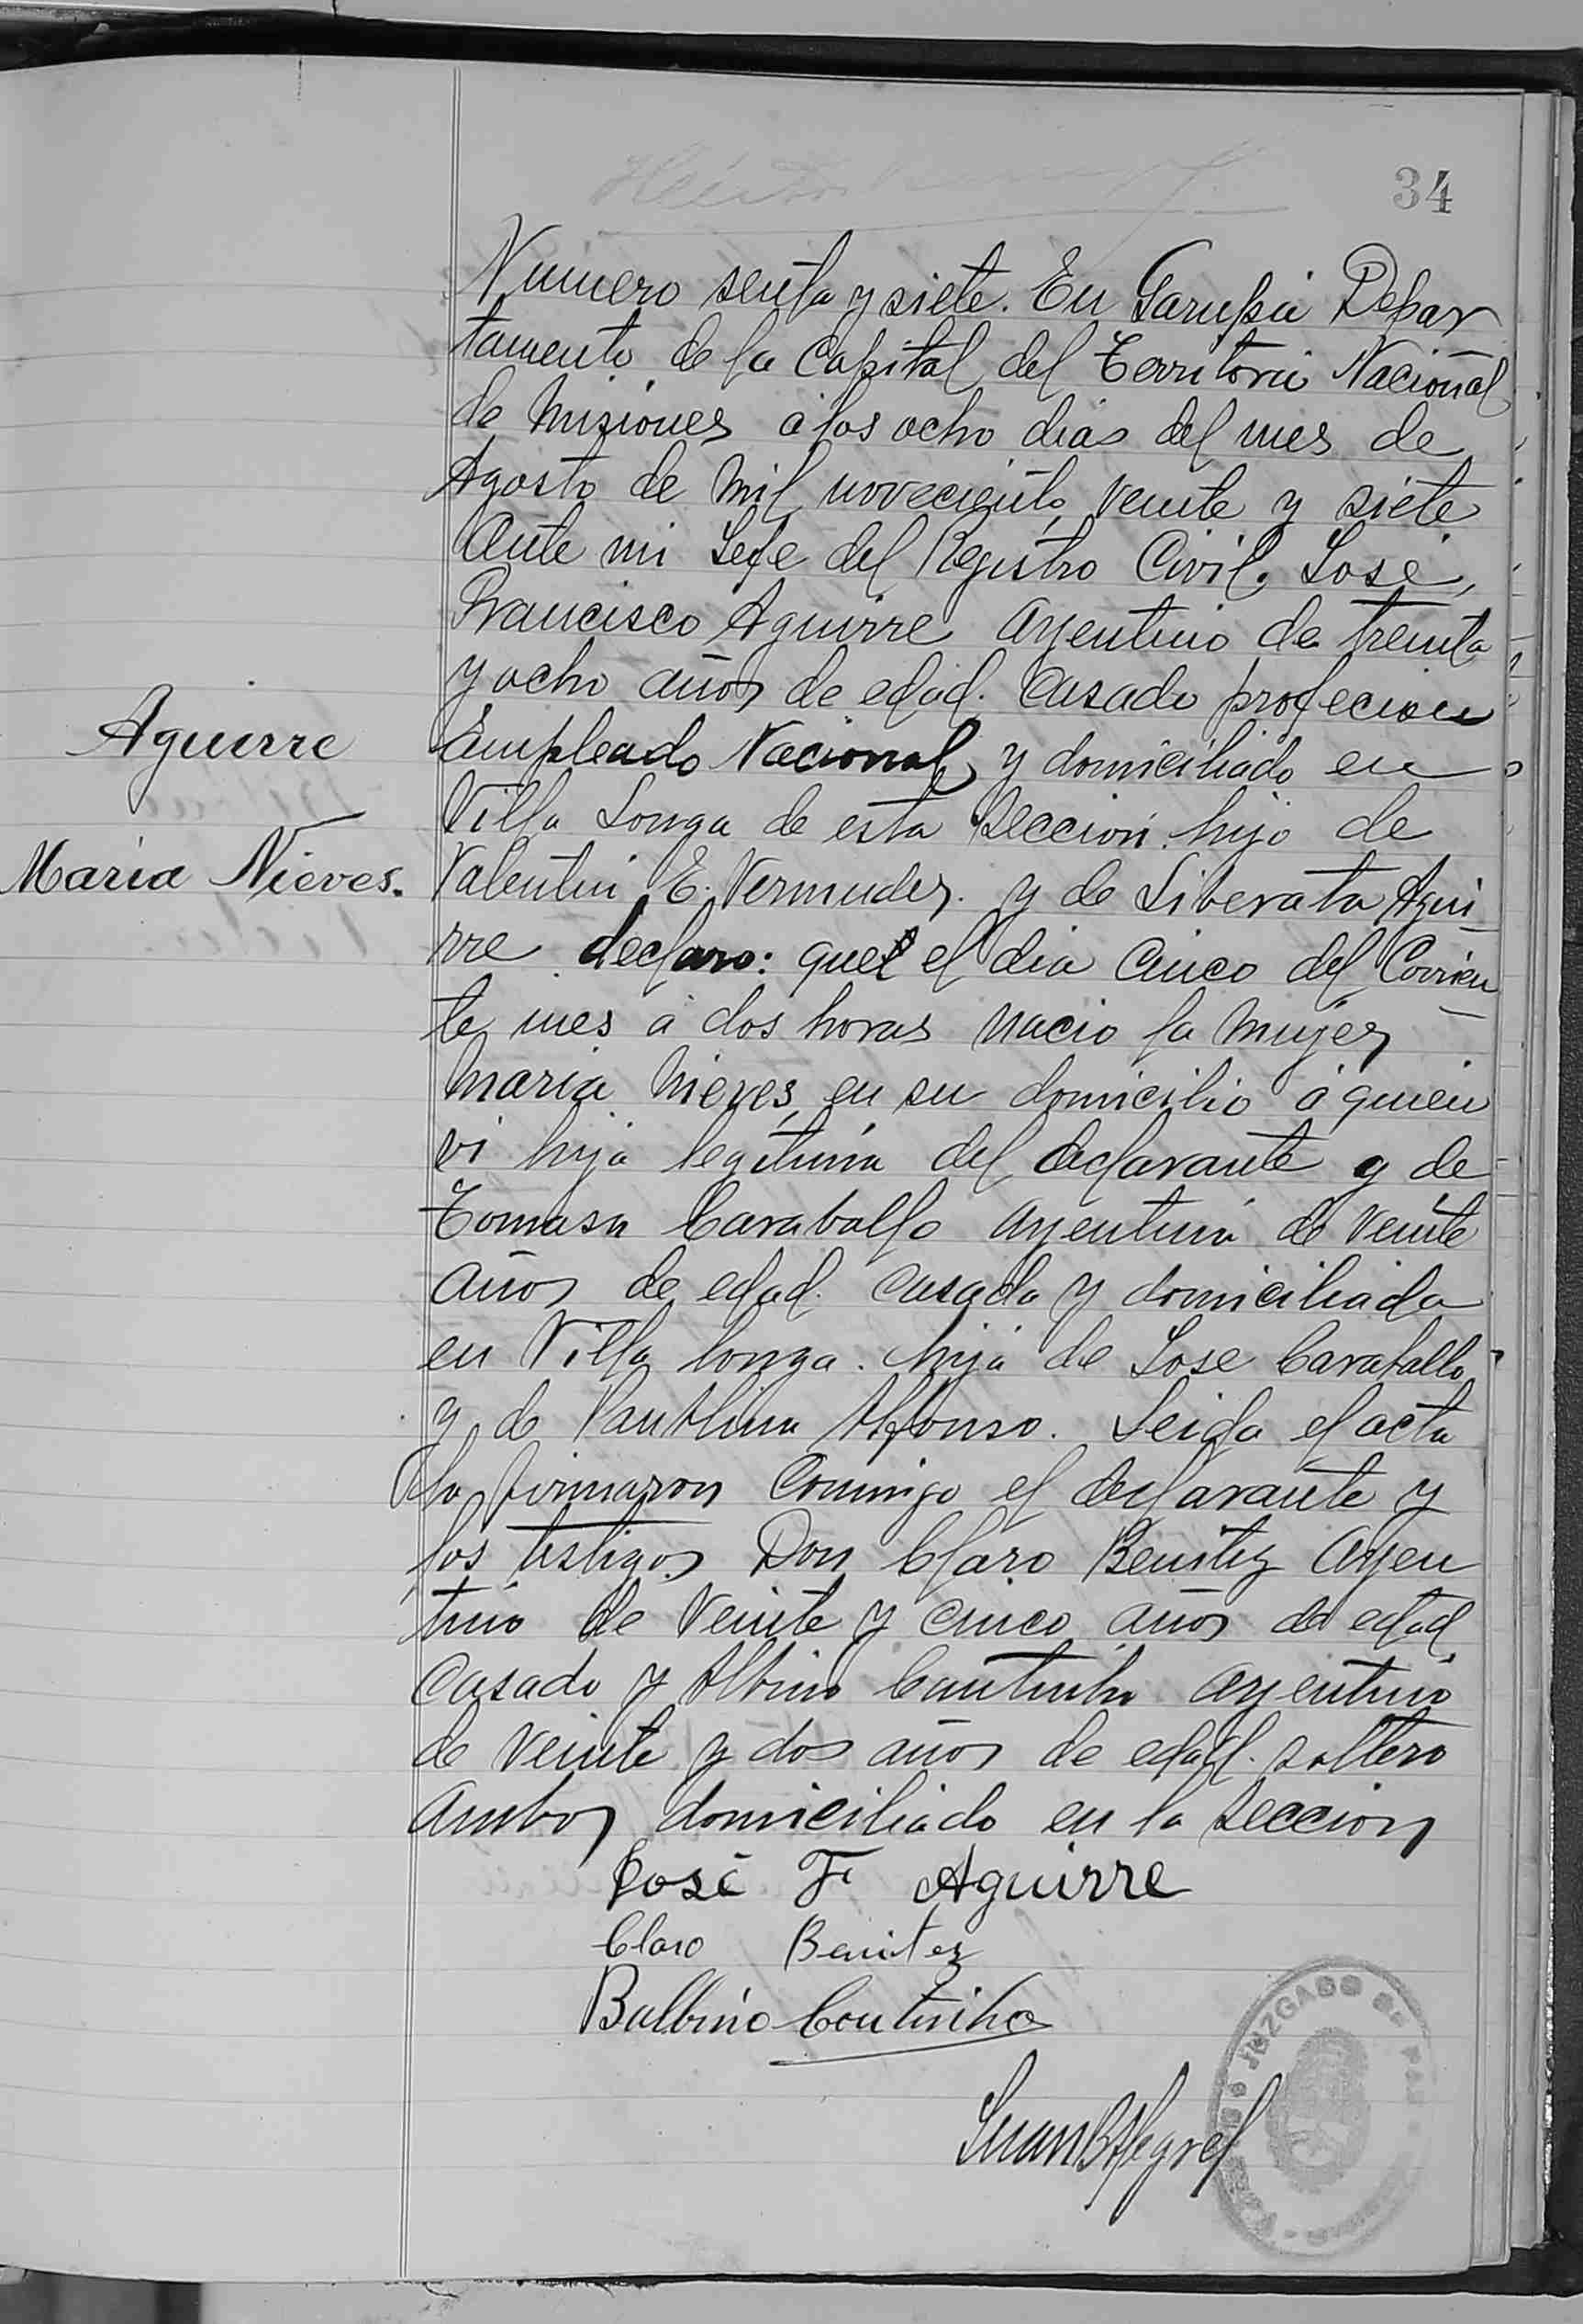 34
Numero senta y siete. En Garupá Depar
tamento de la Capital del Territorio Nacional
de Misiones á los ocho dias del mes de
Agosto de mil noveciento veinte y siete
Ante mi Jefe del Registro Civil. José
Francisco Aguirre Argentino de treinta
y ocho años de edad. Casado profecion
Empleado Nacional y domiciliado en
Aguirre
Villa Longa de esta Seccion. hijo de
Maria Nieves.
Valentin E. Vermudez. y de Liberata Agui
rre declaro: que el dia cinco del Corrien
te mes á dos horas nacio la mujer
Maria Nieves, en su domicilio á quien
vi hija legitima del declarante y de
Tomasa Caraballo Argentina de veinte
años de edad. casada y domiciliada
en Villa Longa. hija de Jose Caraballo
y de Alfonso. Leida el acta
la firmaron Comnigo el declarante y
los testigos Don Claro Benitez Argen
tino de Veinte y cinco años de edad
Casado y Albino Cautinho Argentino
de veinte y dos años de edad. soltero
Ambos domiciliado en la Seccion
José F Aguirre
Claro Benitez
Balbino Coutinho
Juan B Alegre
JUZGADO DE PAZ